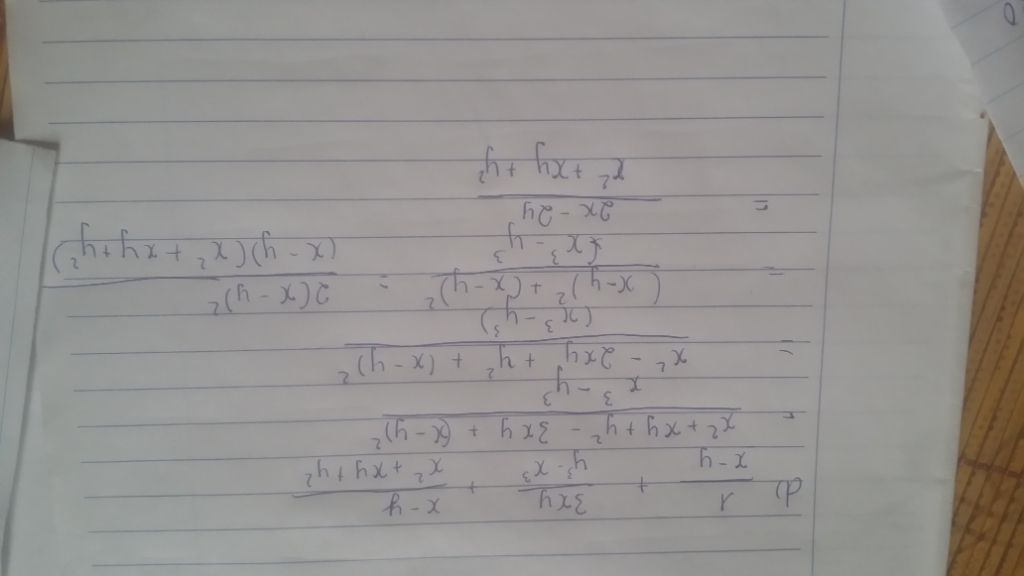 d) 1/(x - y) + 3xy/(y³ - x³) + (x - y)/(x² + xy + y²)
= (x² + xy + y² - 3xy + (x - y)²)/(x³ - y³)
= (x² - 2xy + y² + (x - y)²)/(x³ - y³)
= ((x - y)² + (x - y)²)/(x³ - y³) = 2(x - y)²/((x - y)(x² + xy + y²))
= (2x - 2y)/(x² + xy + y²)